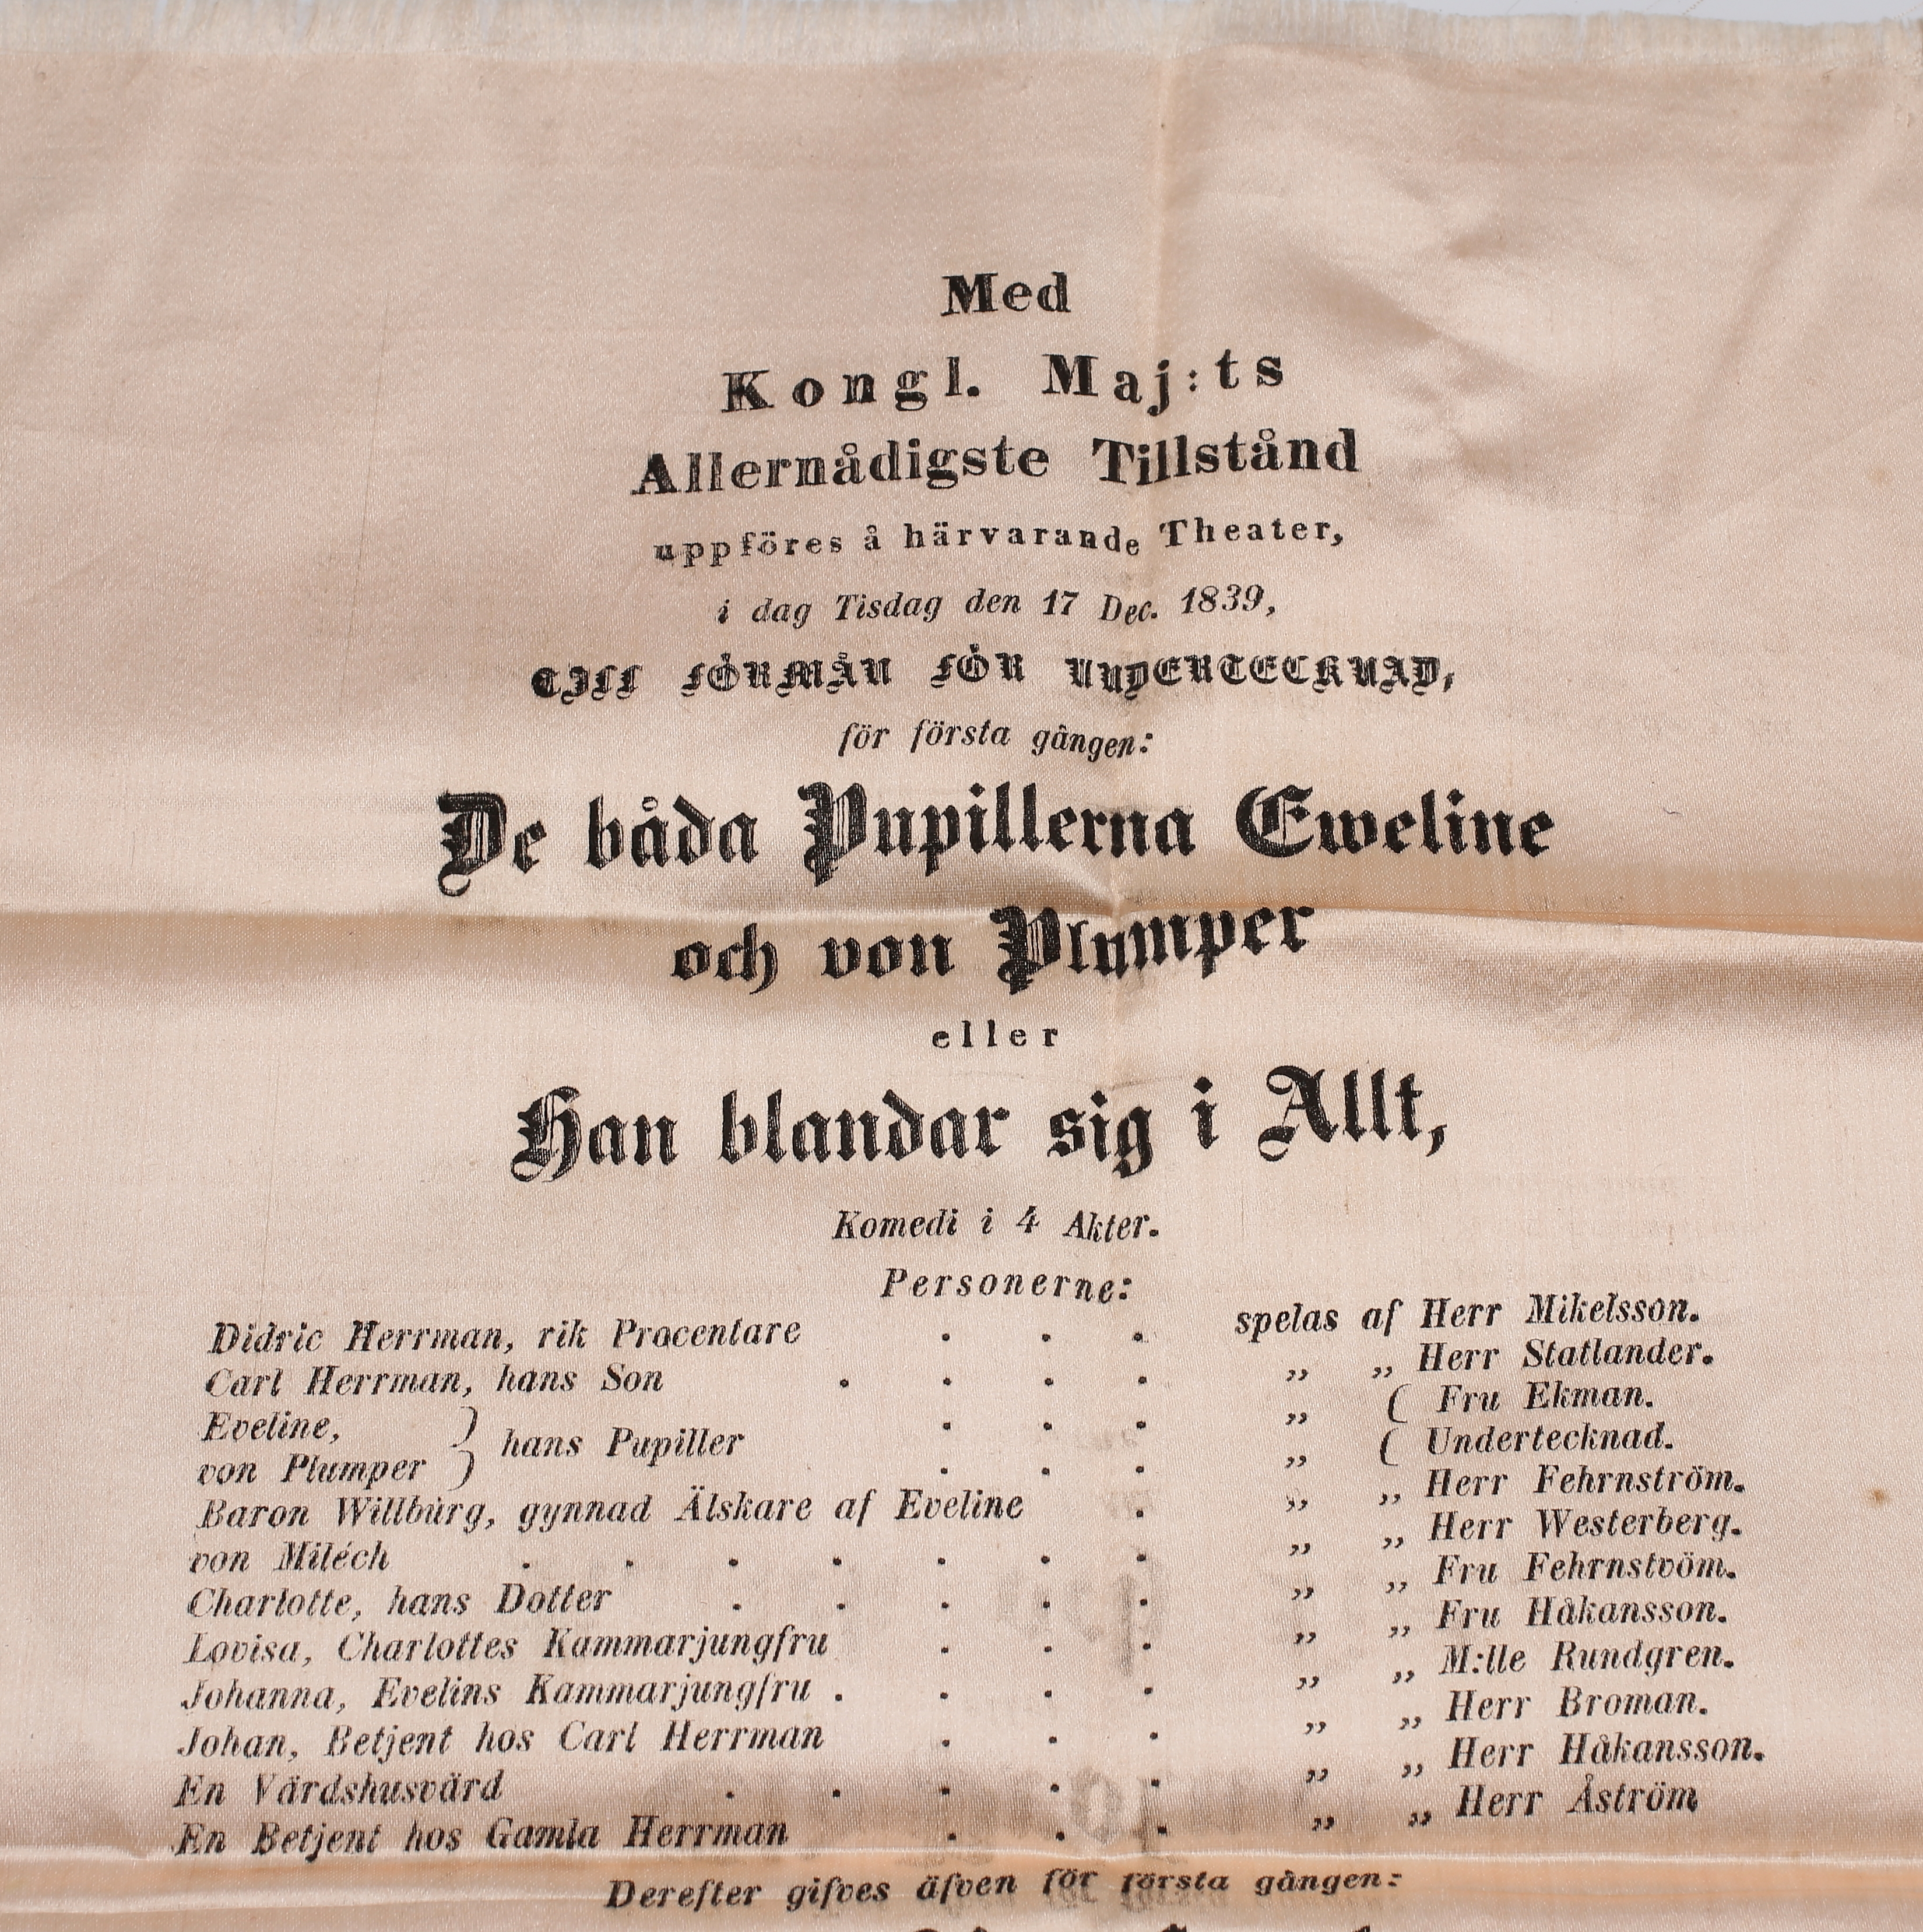 Med
Kongl. Maj:ts
Allernådigste Tillstånd
uppföres å härvarande Theater,
i dag Tisdag den 17 Dec. 1839,
TILL FÖRMÅN FÖR UNDERTECKNAD,
för första gången:
De båda Pupillerna Eweline
och von Plumper
eller
Han blandar sig i Allt,
Komedi i 4 Akter.
Personerne:
Didric Herrman, rik Procentare . . . spelas af Herr Mikelsson.
Carl Herrman, hans Son . . . . „ „ Herr Statlander.
Eveline, } hans Pupiller . . . „ ( Fru Ekman.
von Plumper } . . . „ ( Undertecknad.
Baron Willburg, gynnad Älskare af Eveline . „ „ Herr Fehrnström.
von Miléch . . . . . . . „ „ Herr Westerberg.
Charlotte, hans Dotter . . . . . „ „ Fru Fehrnstvöm.
Lovisa, Charlottes Kammarjungfru . . . „ „ Fru Håkansson.
Johanna, Evelins Kammarjungfru . . . . „ „ M:lle Rundgren.
Johan, Betjent hos Carl Herrman . . . „ „ Herr Broman.
En Värdshusvärd . . . . . „ „ Herr Håkansson.
En Betjent hos Gamla Herrman . . . „ „ Herr Åström
Derefter gifves äfven för första gången: